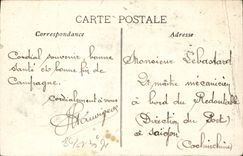 CARTE POSTALE
Correspondance
Adresse
Cordial souvenir bonne
santé et bonne fin de
Campagne.
Cordialement à vous
Monsieur Lebastard
1er maître mécanicien
à bord du Redoutable
Direction du Port
à Saïgon
(Cochinchine)